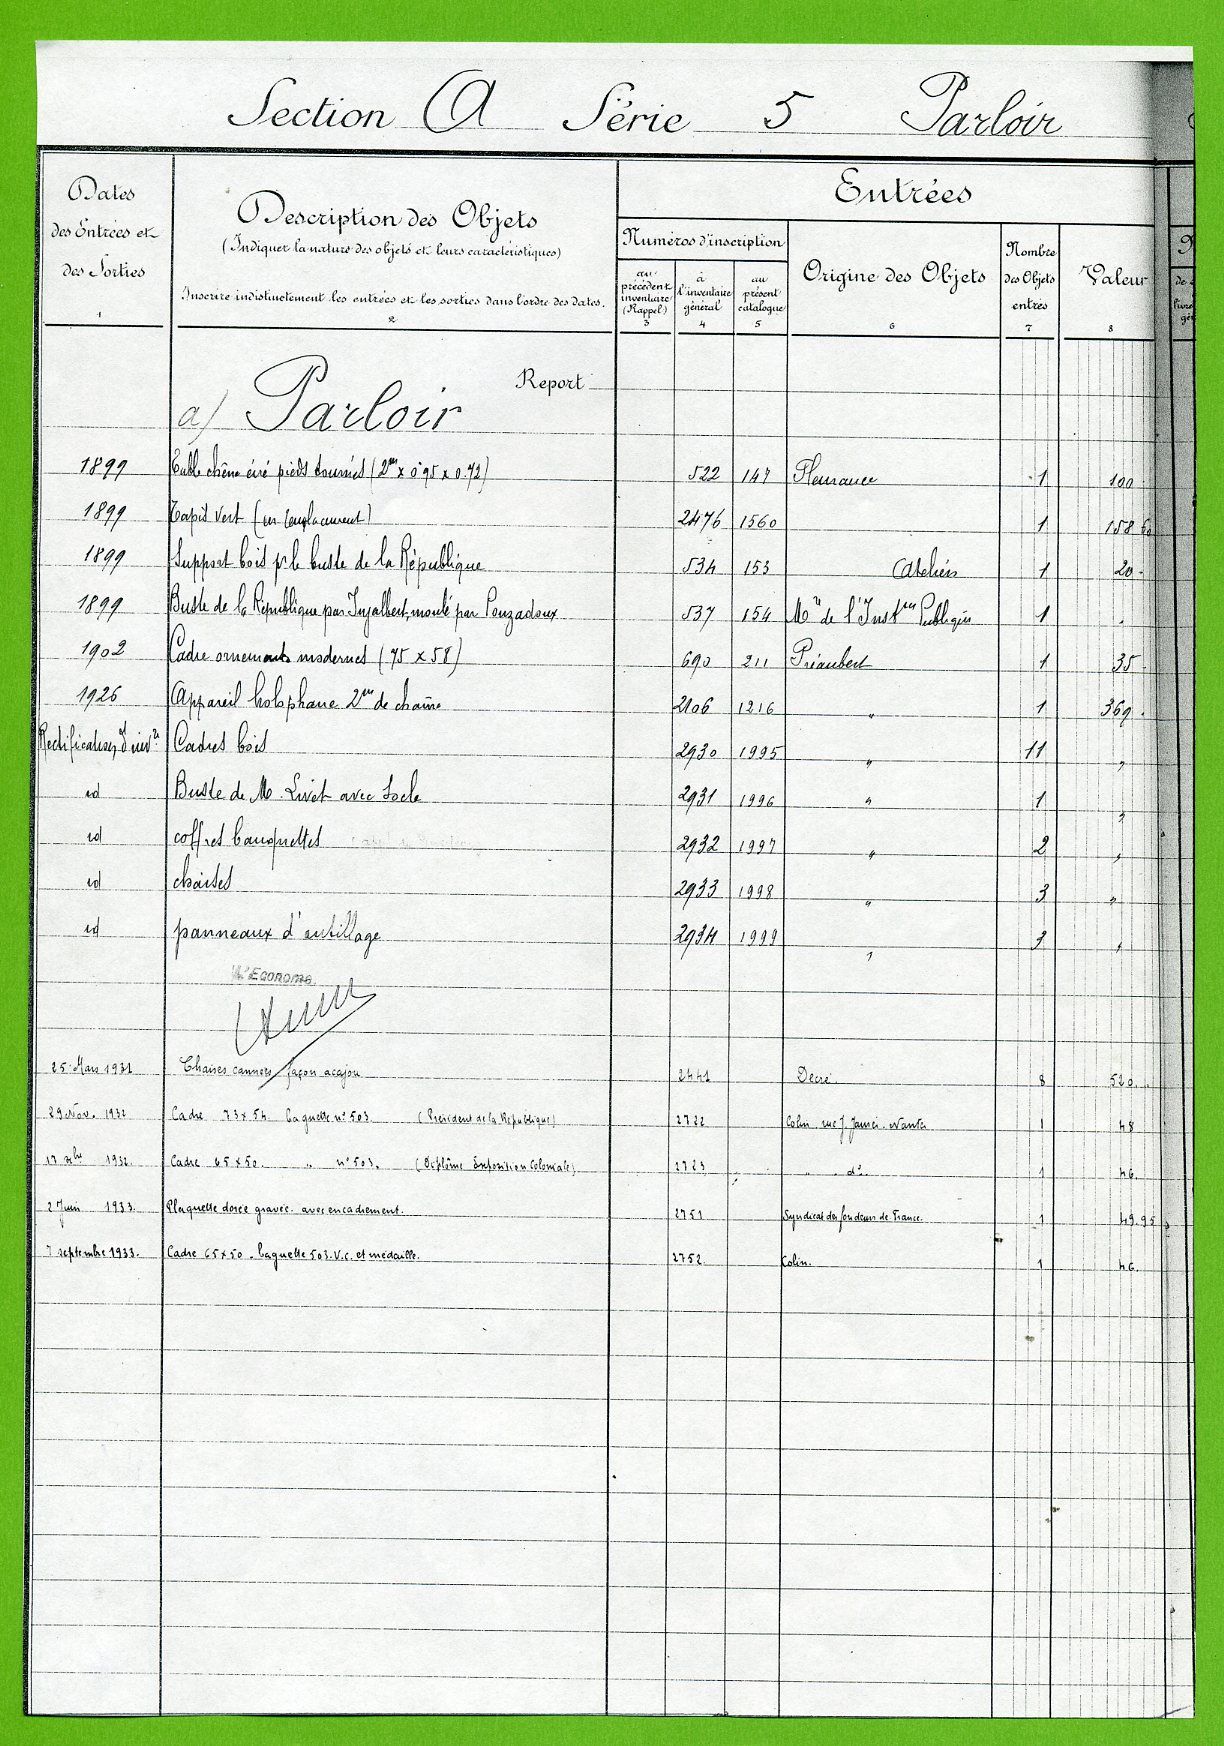 Section A Série 5 Parloir
Dates des Entrées et des Sorties
1
Description des Objets
(Indiquer la nature des objets et leurs caractéristiques)
Inscrire indistinctement les entrées et les sorties dans l'ordre des dates.
2
Entrées
Numéros d'inscription
au précédent inventaire (Rappel)
3
à l'inventaire général
4
au présent catalogue
5
Origine des Objets
6
Nombre des Objets entrés
7
Valeur
8
Report
a) Parloir
1899 Table chêne ciré pieds tournés (2m x 0.95 x 0.72) 522 147 Fleurance 1 100
1899 Tapis vert (en remplacement) 2476 1560 1 158 60
1899 Support bois pr le buste de la République 534 153 Ateliers 1 20
1899 Buste de la République par Injalbert, moulé par Pouzadoux 537 154 Mre de l'Instion Publique 1
1902 Cadre ornements modernes (75 x 58) 690 211 Préaubert 1 35
1926 Appareil holophane 2m de chaîne 2106 1216 " 1 369
Rectification d'invre Cadres bois 2930 1995 " 11 "
id Buste de M. Livet avec socle 2931 1996 " 1 "
id coffres banquettes 2932 1997 " 2 "
id chaises 2933 1998 " 3 "
id panneaux d'outillage 2934 1999 " 3 "
L'Econome
25 Mars 1931 Chaises cannées façon acajou 2441 Decré 8 520
29 Nov. 1932 Cadre 73 x 54 baguette n° 503 (Président de la République) 2722 Colin rue J. Jaurès. Nantes 1 48
17 xbre 1932. Cadre 65 x 50. " n° 503. (Diplôme Exposition Coloniale) 2723 " d° 1 46.
2 Juin 1933. Plaquette dorée gravée avec encadrement. 2751 Syndicat des fondeurs de France. 1 49.95
7 septembre 1933. Cadre 65 x 50. baguette 503. V.C. et médaille. 2752. Colin. 1 46.